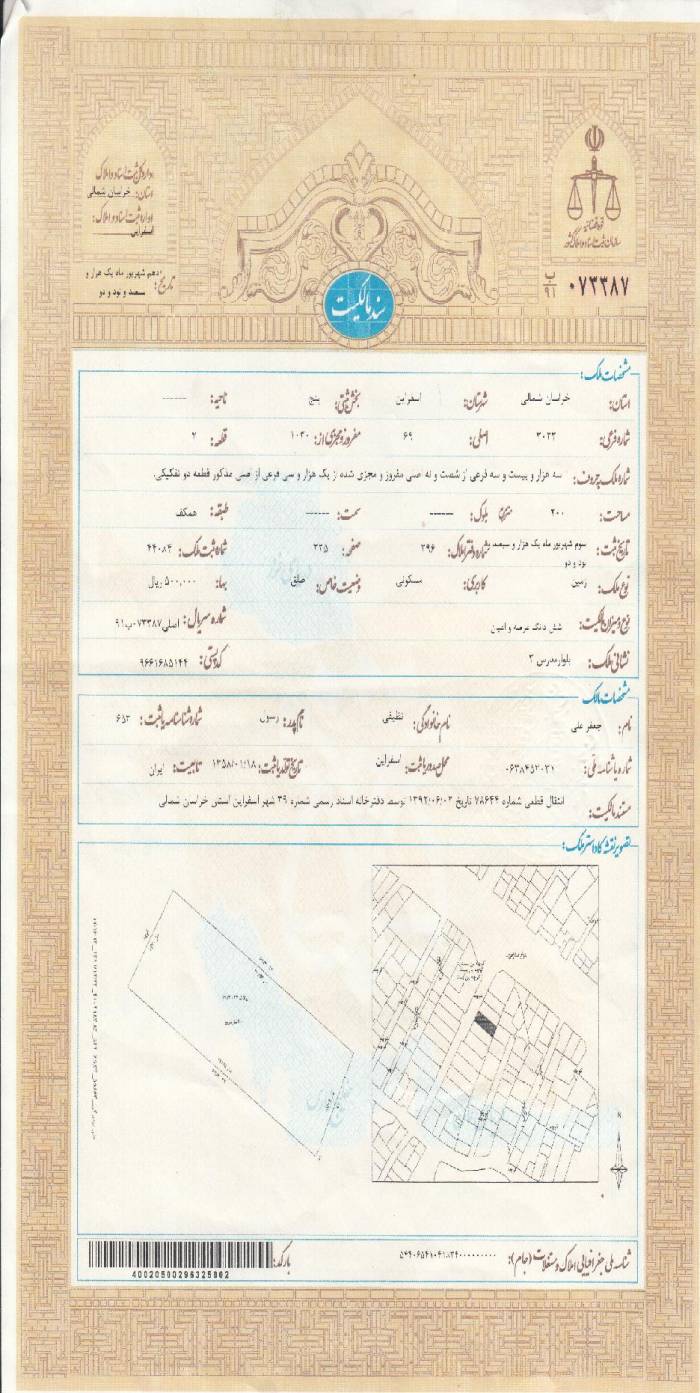 قوه قضائیه
سازمان ثبت اسناد و املاک کشور
اداره کل ثبت اسناد و املاک
استان: خراسان شمالی
اداره ثبت اسناد و املاک:
اسفراین
تاریخ: دهم شهریور ماه یک هزار و
سیصد و نود و دو
۰۷۳۳۸۷ ب ۹۱
سند مالکیت
مشخصات ملک:
استان: خراسان شمالی شهرستان: اسفراین بخش ثبتی: پنج ناحیه: ------
شماره فرعی: ۳۰۲۳ اصلی: ۶۹ مفروز و مجزی از: ۱۰۳۰ قطعه: ۲
شماره ملک بحروف: سه هزار و بیست و سه فرعی از شصت و نه اصلی مفروز و مجزی شده از یک هزار و سی فرعی از اصلی مذکور قطعه دو تفکیکی.
مساحت: ۲۰۰ مترمربع بلوک: ------ سمت: ------ طبقه: همکف
تاریخ ثبت: سوم شهریور ماه یک هزار و سیصد و نود و دو شماره دفتر املاک: ۳۹۶ صفحه: ۲۳۵ شماره ثبت ملک: ۴۴۰۸۴
نوع ملک: زمین کاربری: مسکونی وضعیت خاص: طلق بهاء: ۵۰۰,۰۰۰ ریال
نوع و میزان مالکیت: شش دانگ عرصه و اعیان شماره سریال: اصلی۰۷۳۳۸۷-ب۹۱
نشانی ملک: بلوار مدرس ۳ کد پستی: ۹۶۶۱۶۸۵۱۴۴
مشخصات مالک
نام: جعفر علی نام خانوادگی: نظیفی نام پدر: رسول شماره شناسنامه یا ثبت: ۶۵۳
شماره یا شناسه ملی: ۰۶۳۸۴۵۲۰۳۱ محل صدور یا ثبت: اسفراین تاریخ تولد یا ثبت: ۱۳۵۸/۰۱/۱۸ تابعیت: ایران
مستند مالکیت: انتقال قطعی شماره ۷۸۶۴۴ تاریخ ۱۳۹۲/۰۶/۰۲ توسط دفترخانه اسناد رسمی شماره ۳۹ شهر اسفراین استان خراسان شمالی
تصویر نقشه کاداستر ملک:
N
شناسه ملی جغرافیایی املاک و مستغلات (جام):
بارکد:
40020500296325802